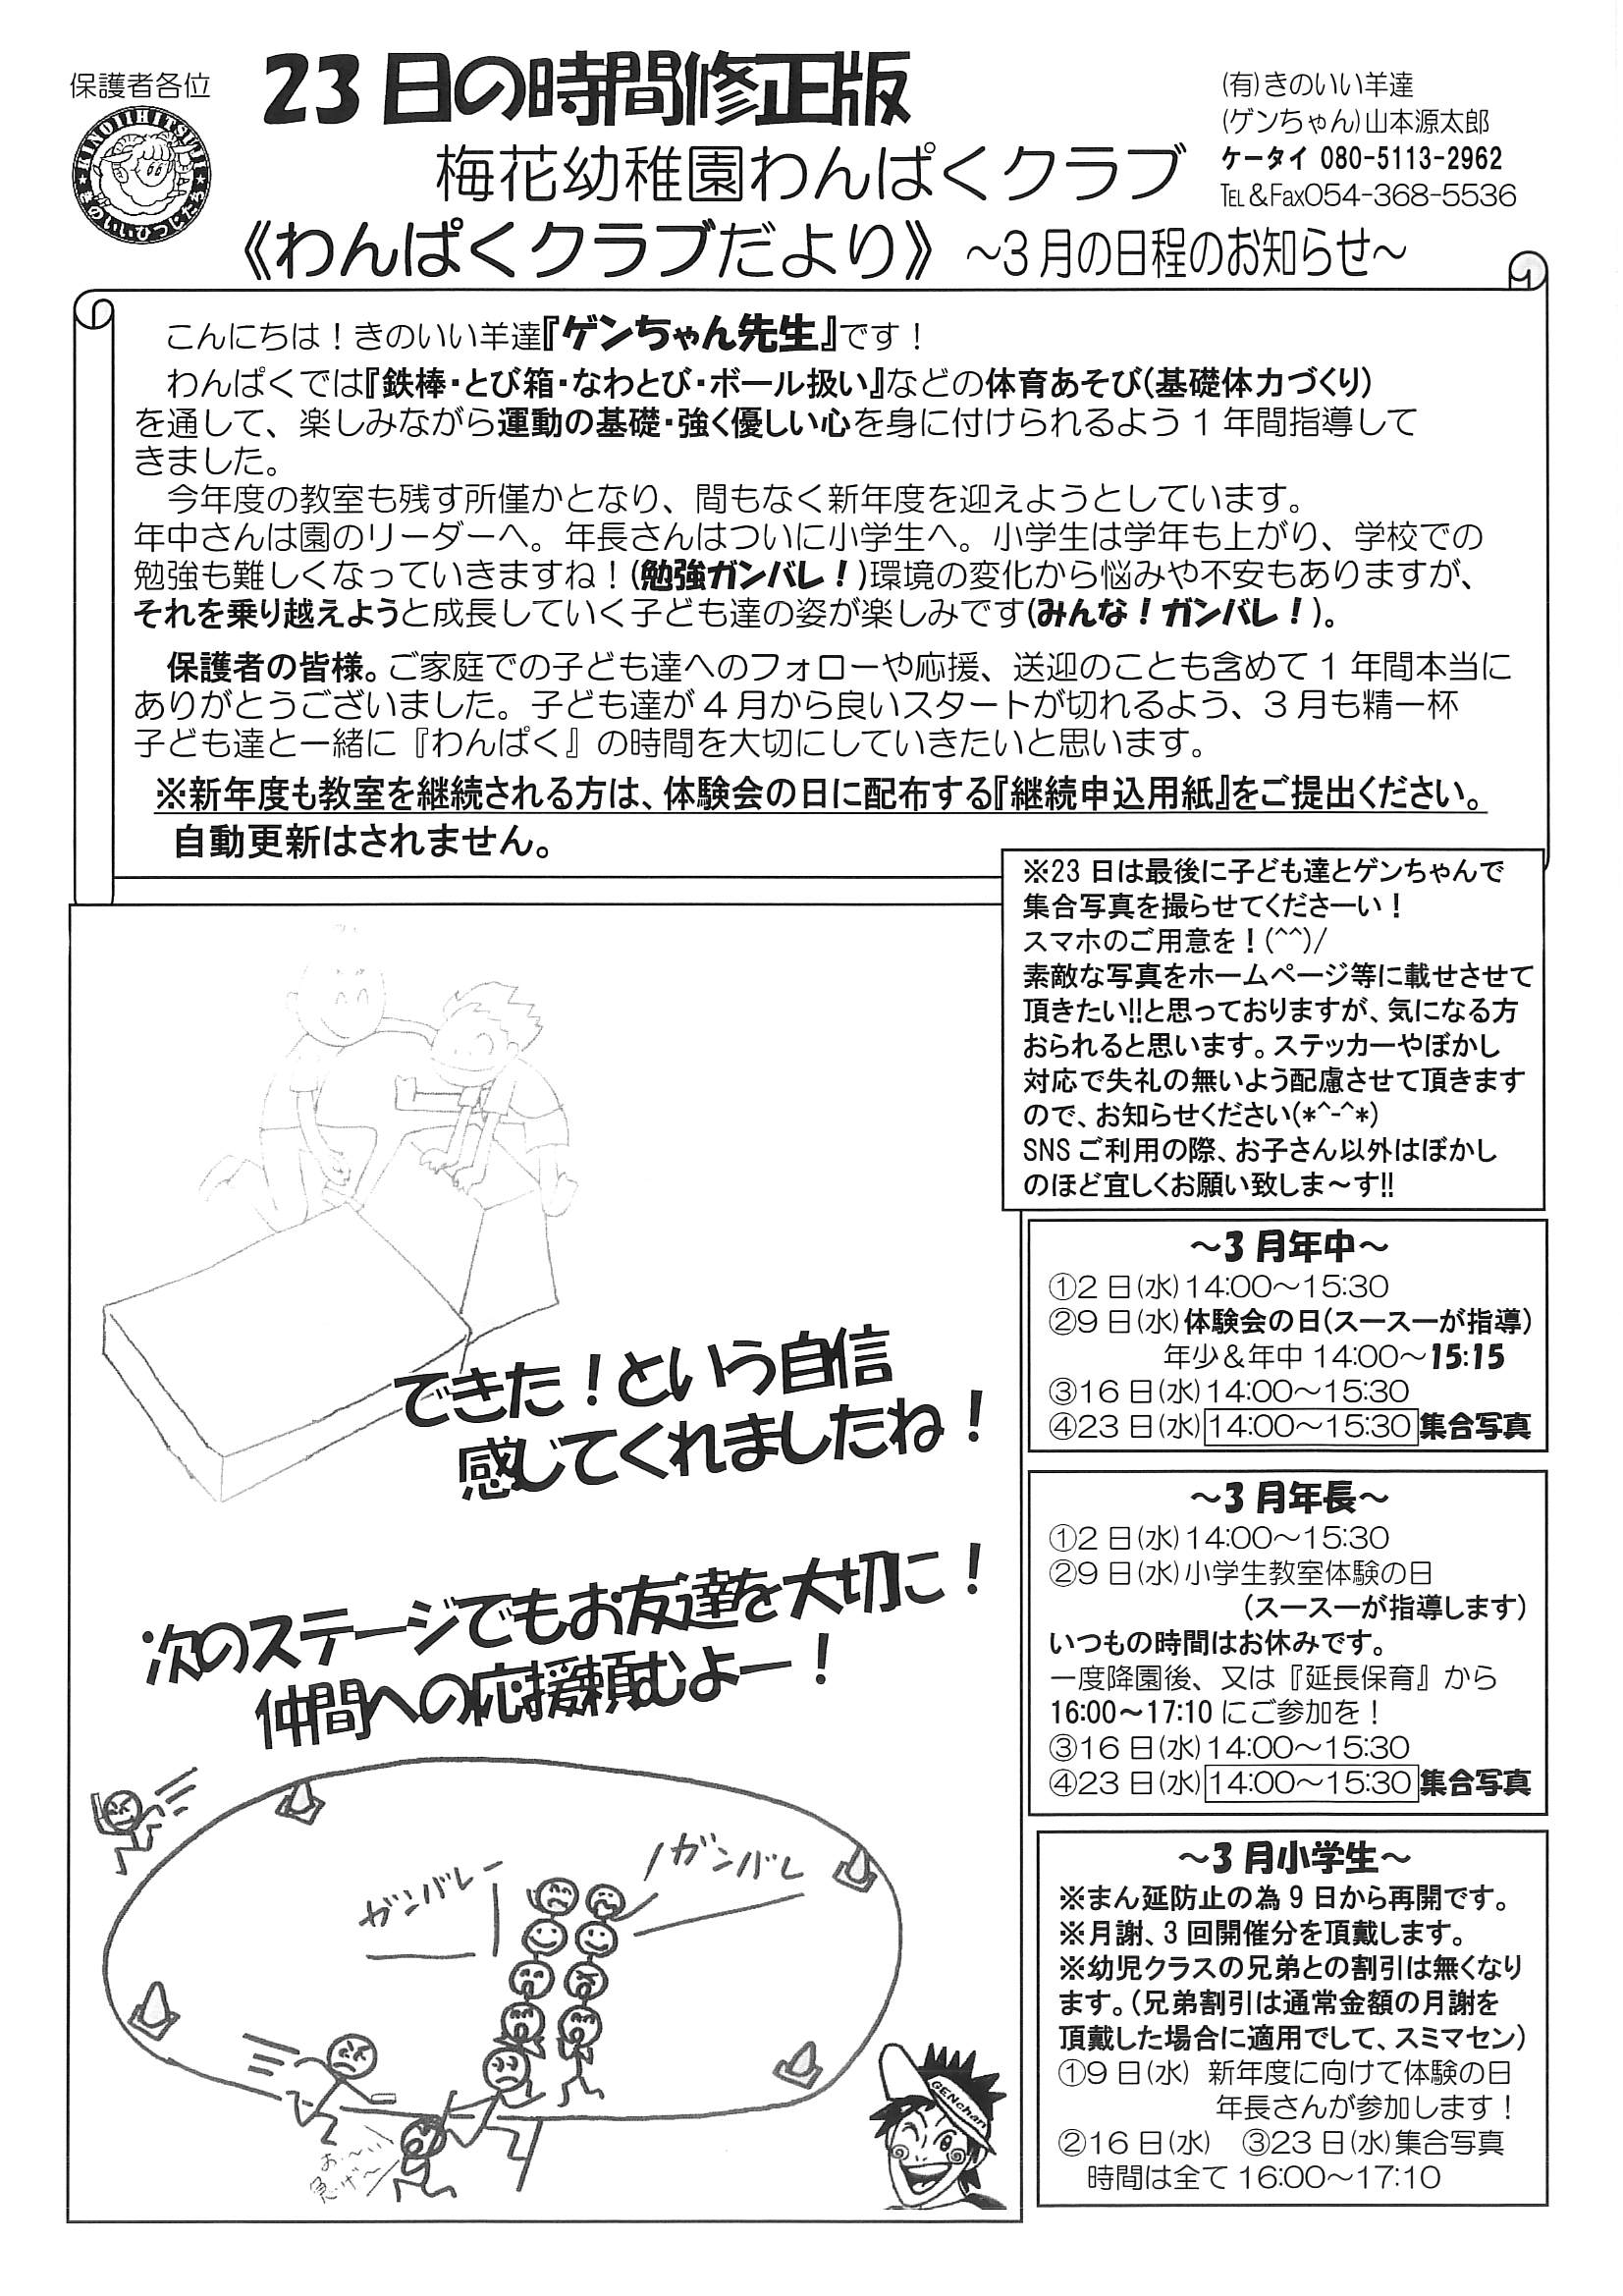 保護者各位
23日の時間修正版
(有)きのいい羊達
(ゲンちゃん)山本源太郎
ケータイ 080-5113-2962
TEL&Fax054-368-5536
KINOIIHITSUJI
きのいいひつじたち
梅花幼稚園わんぱくクラブ
《わんぱくクラブだより》 ～3月の日程のお知らせ～
こんにちは！きのいい羊達『ゲンちゃん先生』です！
わんぱくでは『鉄棒・とび箱・なわとび・ボール扱い』などの体育あそび(基礎体力づくり)
を通して、楽しみながら運動の基礎・強く優しい心を身に付けられるよう1年間指導して
きました。
今年度の教室も残す所僅かとなり、間もなく新年度を迎えようとしています。
年中さんは園のリーダーへ。年長さんはついに小学生へ。小学生は学年も上がり、学校での
勉強も難しくなっていきますね！(勉強ガンバレ！)環境の変化から悩みや不安もありますが、
それを乗り越えようと成長していく子ども達の姿が楽しみです(みんな！ガンバレ！)。
保護者の皆様。ご家庭での子ども達へのフォローや応援、送迎のことも含めて1年間本当に
ありがとうございました。子ども達が4月から良いスタートが切れるよう、3月も精一杯
子ども達と一緒に『わんぱく』の時間を大切にしていきたいと思います。
※新年度も教室を継続される方は、体験会の日に配布する『継続申込用紙』をご提出ください。
自動更新はされません。
※23日は最後に子ども達とゲンちゃんで
集合写真を撮らせてくださーい！
スマホのご用意を！(^^)/
素敵な写真をホームページ等に載せさせて
頂きたい!!と思っておりますが、気になる方
おられると思います。ステッカーやぼかし
対応で失礼の無いよう配慮させて頂きます
ので、お知らせください(*^-^*)
SNSご利用の際、お子さん以外はぼかし
のほど宜しくお願い致しま～す!!
できた！という自信
感じてくれましたね！
次のステージでもお友達を大切に！
仲間への応援頼むよー！
ガンバレー
ガンバレ
お～い
急げ～
GENchan
～3月年中～
①2日(水)14:00～15:30
②9日(水)体験会の日(スースーが指導)
年少&年中14:00～15:15
③16日(水)14:00～15:30
④23日(水)14:00～15:30集合写真
～3月年長～
①2日(水)14:00～15:30
②9日(水)小学生教室体験の日
(スースーが指導します)
いつもの時間はお休みです。
一度降園後、又は『延長保育』から
16:00～17:10にご参加を！
③16日(水)14:00～15:30
④23日(水)14:00～15:30集合写真
～3月小学生～
※まん延防止の為9日から再開です。
※月謝、3回開催分を頂戴します。
※幼児クラスの兄弟との割引は無くなり
ます。(兄弟割引は通常金額の月謝を
頂戴した場合に適用でして、スミマセン)
①9日(水) 新年度に向けて体験の日
年長さんが参加します！
②16日(水) ③23日(水)集合写真
時間は全て16:00～17:10